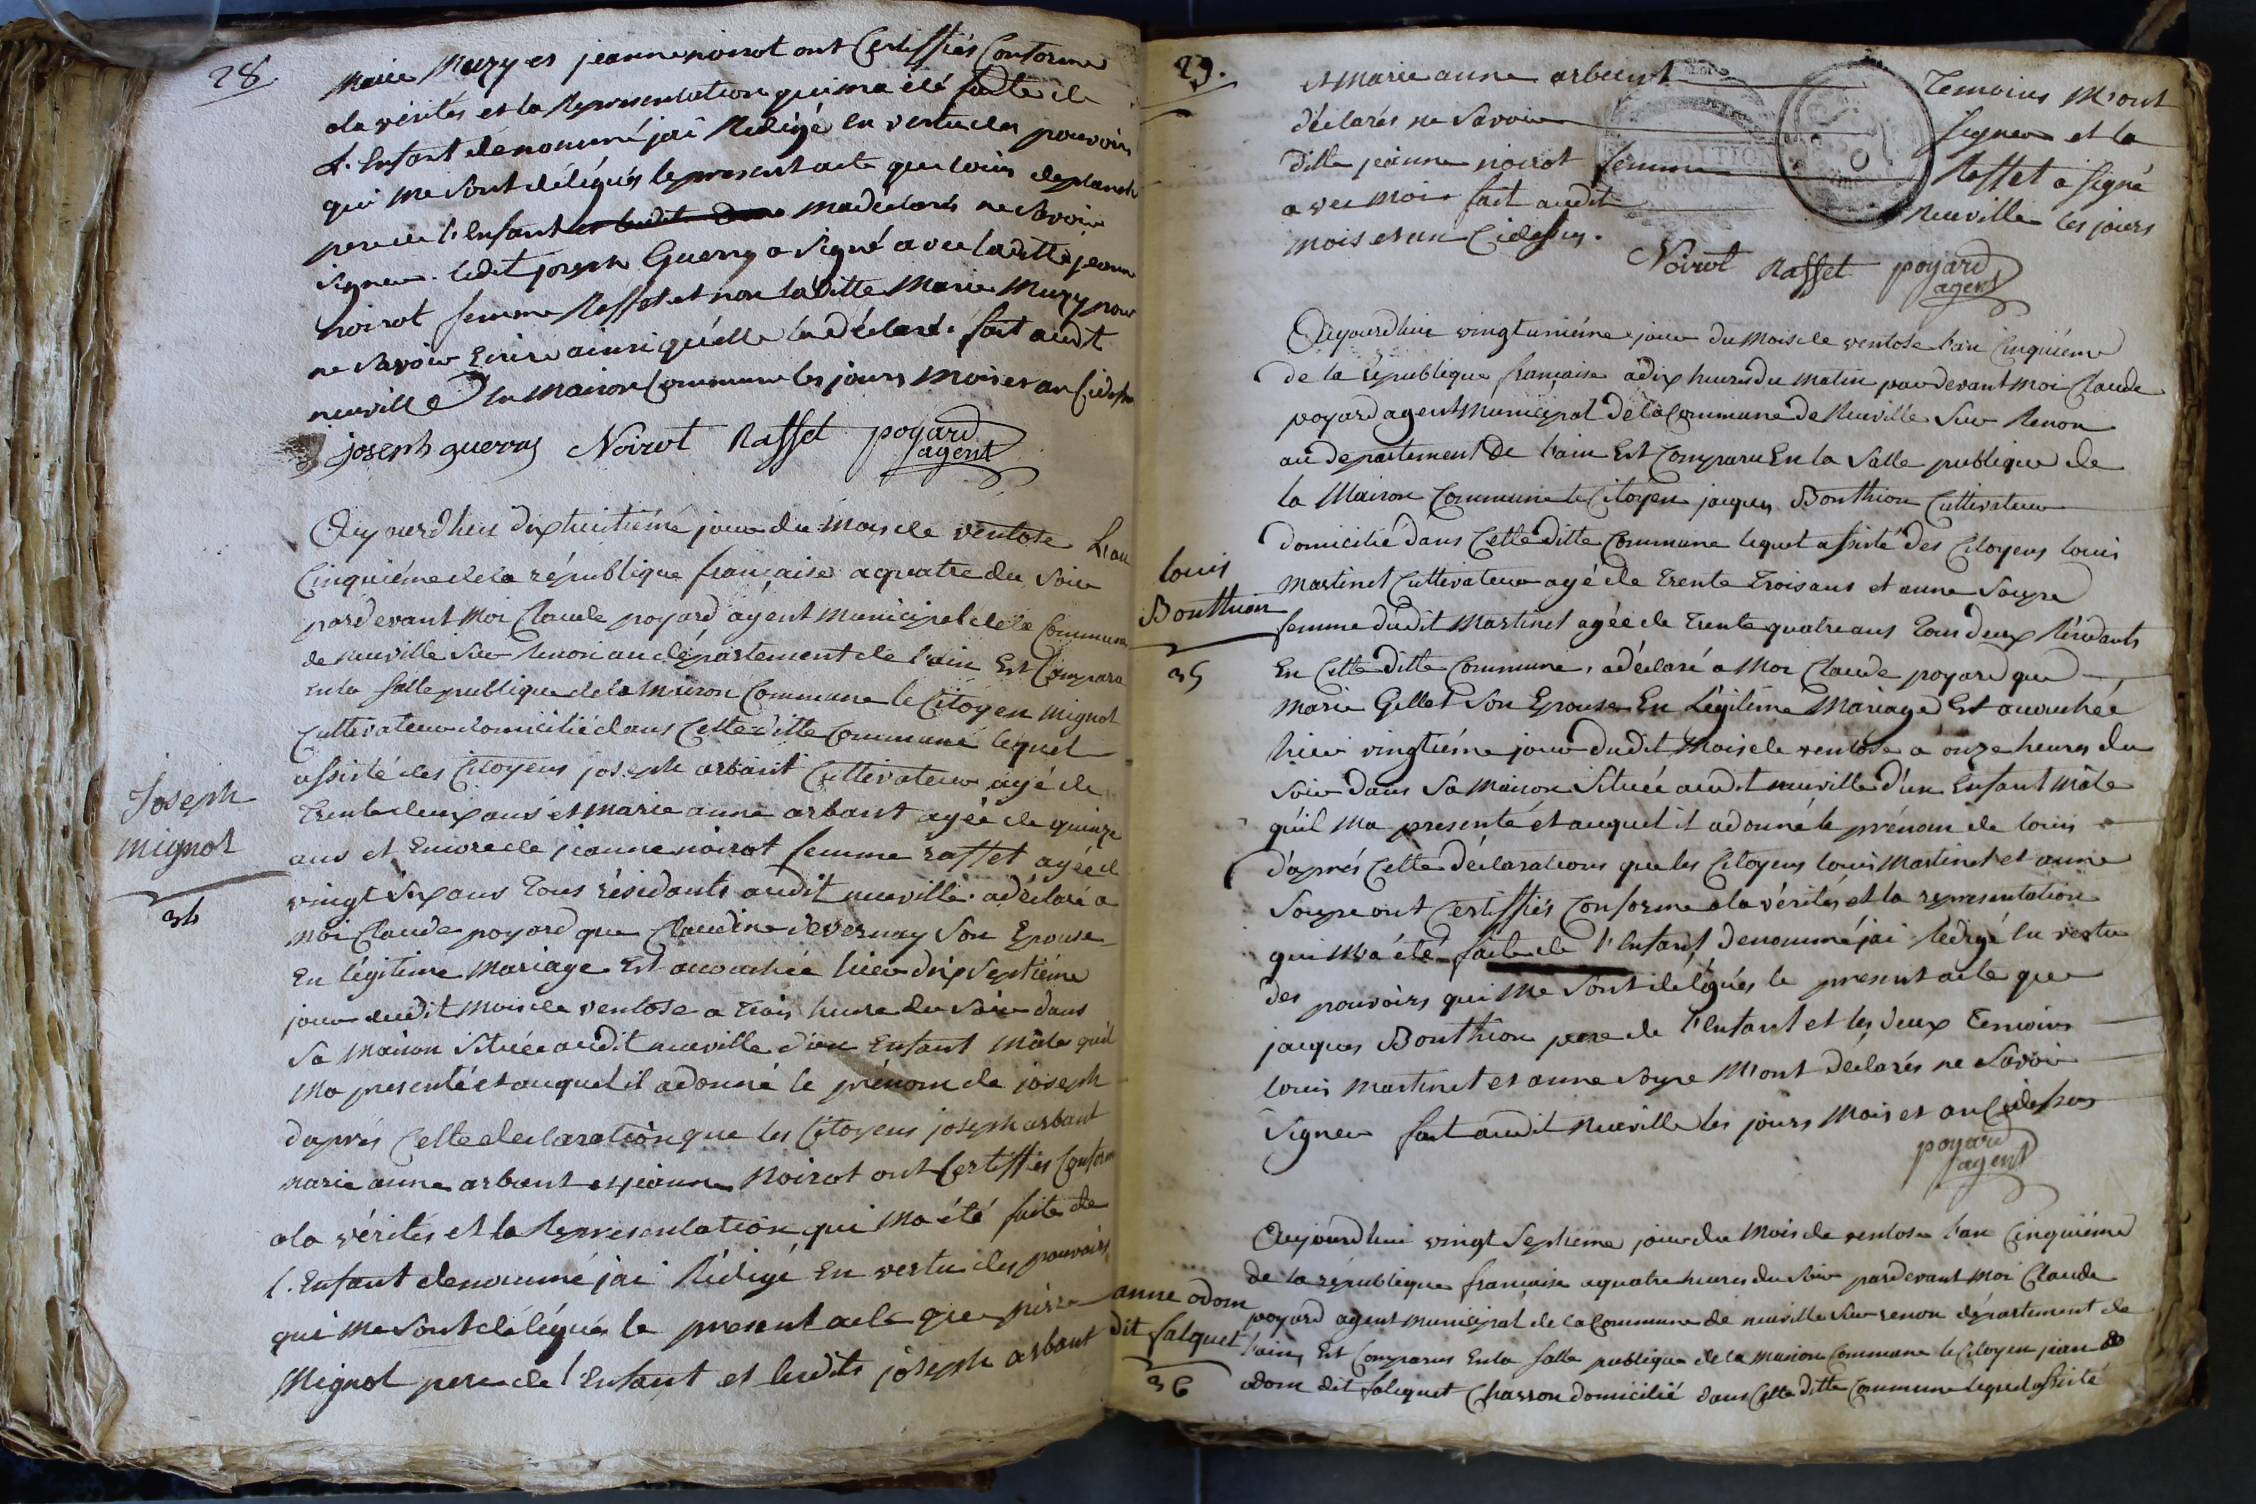 28.
Marie Mury et jeanne noirot ont Certiffiés Conforme
ala vérités et la Representation qui ma été faitte de
L'Enfant dénommé jai Redigé en vertu des pouvoirs
qui me sont délégués le present acte que louis deplanch
pere de l'Enfant et ledit madeclarés ne Savoir
Signer. ledit joseph Guerry a Signé avec laditte jeanne
noirot femme Raffet et non laditte Marie Mury pour
ne Savoir Ecrire ainsi quélle la déclaré. fait audt
neuville En Maison Commune les jours Mois et an Cidessus
joseph guerry Noirot Raffet poyard
agent
Aujourdhui dixhuitiémé jour du Mois de ventose L'an
Cinquiéme de la république française aquatre du Soir
pardevant Moi Claude poyard agent Municipal de la Commune
de neuville Sur Renon au département de l'ain Est Comparu
En la Salle publique de la Maison Commune le Citoyen mignot
Cultivateur domicilié dans Cette ditte Commune lequel
assisté des Citoyens joseph arbant Cultivateur agé de
Trente deux ans et Marie anne arbant agée de quinze
ans et Encore de jeanne noirot femme raffet agée de
vingt Six ans Tous résidants audit neuville. adéclaré a
Moi Claude poyard que Claudine devernay Son Epouse
En légitime Mariage Est accouchée hier dix Septiéme
jour dudit Mois de ventose a Trois heure du Soir dans
Sa Maison Située audit neuville d'un Enfant Mâle qu'il
Ma presenté et auquel il adonné le prénom de joseph
d'aprés Cette declaration que les Citoyens joseph arbant
marie anne arbant et jeanne Noirot ont Certiffiés Conforme
ala vérités et la Representation qui Ma été faite de
l'Enfant denommé jai Rédigé En vertu des pouvoirs
qui me Sont délégués le present acte que pierre
Mignot pere de l'Enfant et lesdits joseph arbant
Joseph
mignot
34
29.
et Marie anne arbant Temoins M'ont
déclarés ne Savoir Signer et la
ditte jeanne noirot femme Raffet a Signé
avec moi. fait audit Neuville les jours
mois et an Cidessus.
Noirot Raffet poyard
agent
Aujourdhui vingtuniéme jour du Mois de ventose l'an Cinquiéme
de la république française adix heures du Matin pardevant Moi Claude
poyard agent Municipal de la Commune de Neuville Sur Renon
au departement de l'ain Est Comparu En la Salle publique de
la Maison Commune le Citoyen jacques Bonthion Cultivateur
domicilié dans Cette ditte Commune lequel assisté des Citoyens louis
Martinet Cultivateur agé de Trente Trois ans et anne Soupe
femme dudit Martinet agée de Trente quatre ans Tous deux Résidants
En Cette ditte Commune, adéclaré a Moi Claude poyard que
Marie Gillet Son Epouse En Légitime Mariage Est accouchée
hier vingtiéme jour dudit Mois de ventose a onze heures du
Soir dans Sa Maison Située audit neuville d'un Enfant Mâle
qu'il Ma presenté et auquel il adonné le prénom de louis
d'aprés Cette déclarations que les Citoyens louis Martinet et anne
Soupe ont Certiffiés Conforme ala vérités et la representation
qui Ma été faite de l'Enfant denommé jai Redigé En vertu
des pouvoirs qui Me Sont délégués le present acte que
jacques Bonthion pere de l'Enfant et les deux Temoins
louis Martinet et anne Soupe M'ont déclarés ne Savoir
Signer fait audit Neuville les jours Mois et an Cidessus
poyard
agent
louis
Bonthion
35
Aujourdhui vingt Septieme jour du Mois de ventose l'an Cinquiéme
de la république française aquatre heures du Soir pardevant Moi Claude
poyard agent Municipal de la Commune de neuville Sur renon département de
l'ain, Est Comparus En la Salle publique de la Maison Commune le Citoyen jean
adom dit falquet Charron domicilié dans Cette ditte Commune lequel assisté
anne adom
dit falquet
36